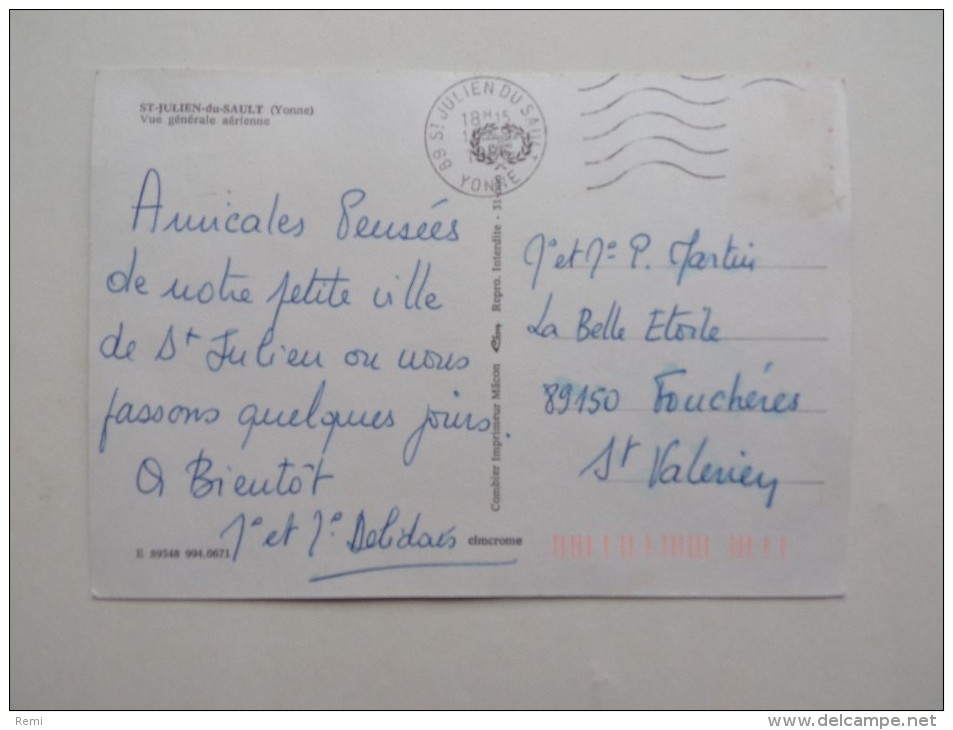 ST-JULIEN-du-SAULT (Yonne)
Vue générale aérienne
89 ST JULIEN DU SAULT
18H15
YONNE
Amicales Pensées
de notre petite ville
de St Julien ou nous
passons quelques jours.
A Bientôt
Mr et Me
E 89548 994.0671
cimcrome
Combier Imprimeur Mâcon Repro. Interdite
Mr et Me P. Martin
La Belle Etoile
89150 Fouchères
St Valerien
Remi
www.delcampe.net